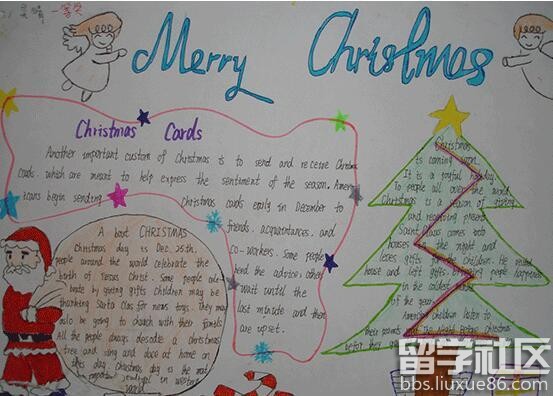 灵晴 一等奖
Merry Christmas
Christmas Cards
Another important custom of Christmas is to send and receive Christmas
Cards. which are meant to help express the sentiment of the season. Amer
icans begin sending Christmas cards early in December to
friends. acquaintances. and
co-workers. Some people
send the advice; others
wait until the
last minute and then
are upset.
A bout CHRISTMAS
Christmas day is Dec. 25th.
people around the world celebrate the
birth of Christ. Some people cele
brate by giving gifts Children may be
thanking Santa Clas for news toys. They may
also be going to church with their
All the people always a Christmas
tree and sing and dace at home on
this day Christmas day is the most
important in western
World
Christmas
is coming soon.
It is a joyful holiday
To people all over the world
Christmas is a season of giving
and receiving present
Saint Claus comes into
houses in the night and
leaves gifts for the children. He
house and left gifts. people happened
in the coldest
of the year.
American children listen to
their parents and the Night Before Christmas
before they go
留学社区
bbs.liuxue86.com